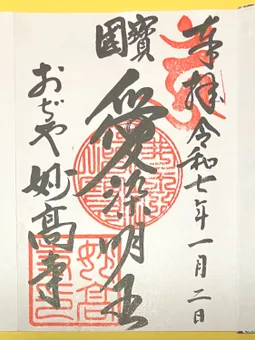 奉拝 令和七年一月二日
國寶
愛染明王
おぢや 妙高寺